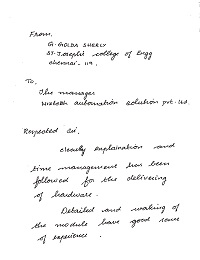 From,
G. GOLDA SHERLY
ST. Joseph's college of Engg
chennai - 119.
To,
The manager
automation solution pvt. Ltd
Respected sir,
clearly explanation and
time management has been
followed for the delivering
of hardware.
Detailed and making of
the module have good sense
of experience.